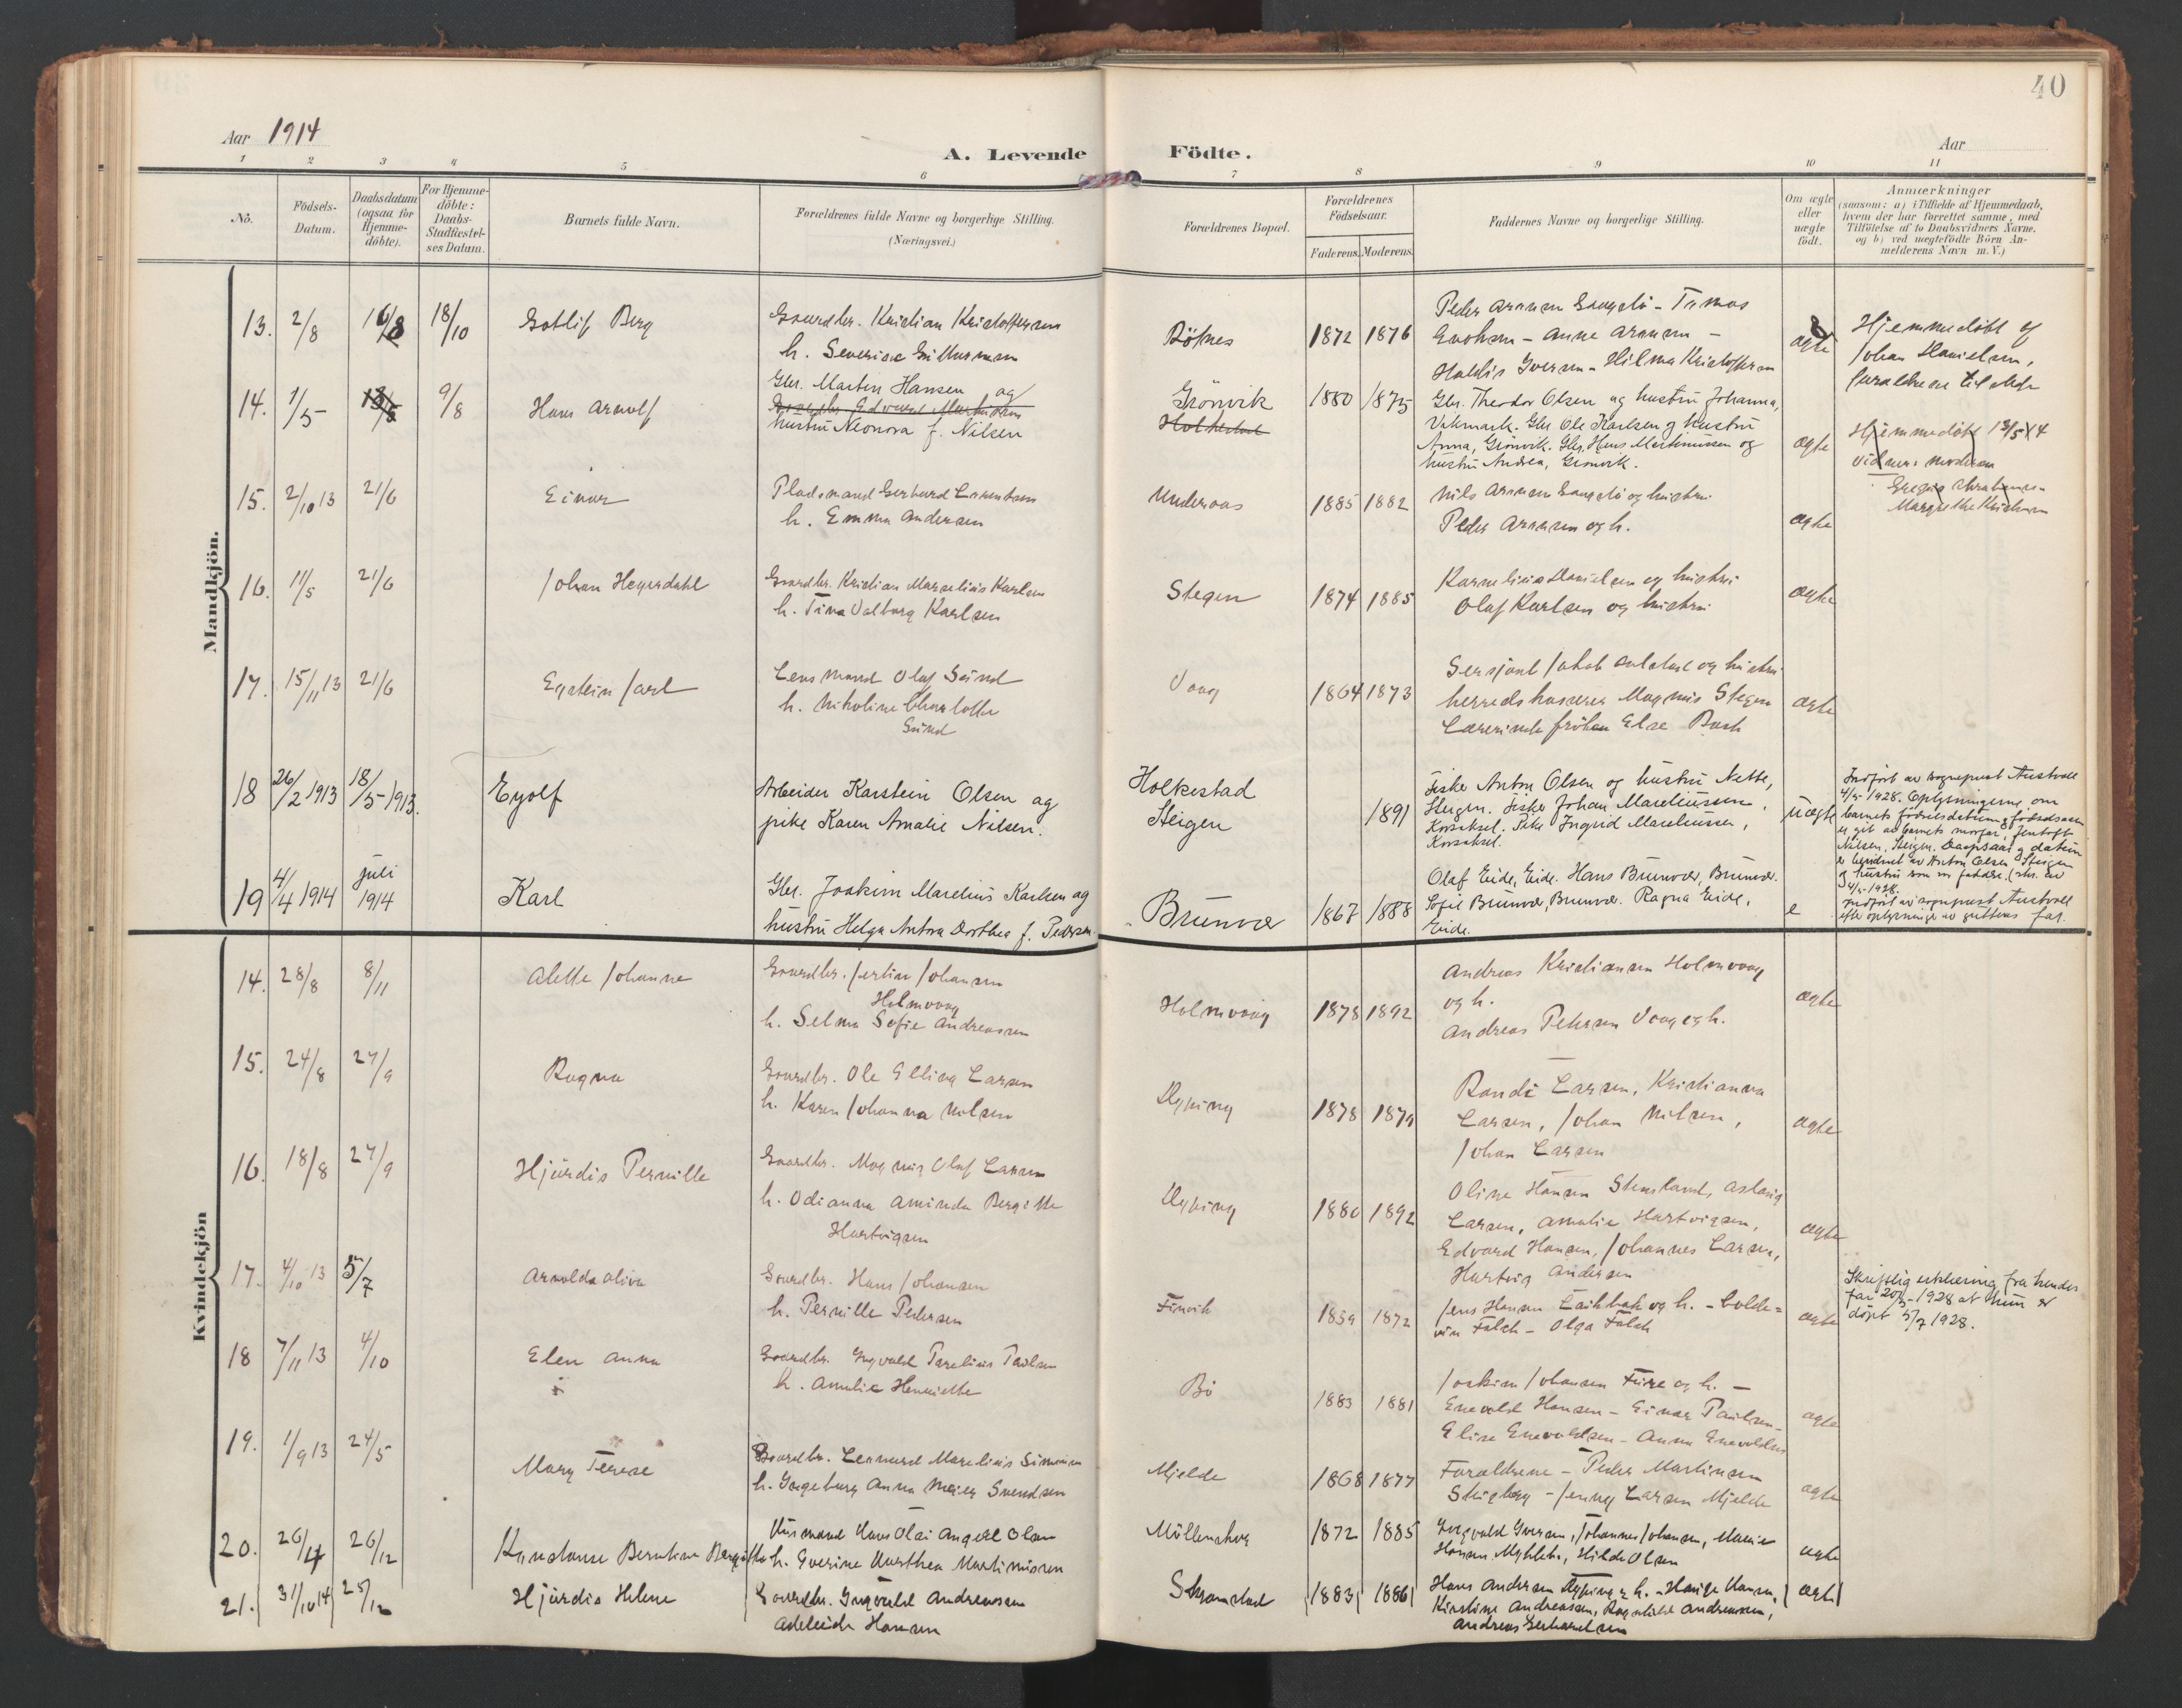 40
Aar 1914
Aar
A. Levende Födte.
1 2 3 4 5 6 7 8 9 10 11
No.
Födsels-Datum.
Daabsdatum (ogsaa for Hjemme-döbte).
For Hjemme-döbte: Daabs-Stadfæstel-ses Datum.
Barnets fulde Navn.
Forældrenes fulde Navne og borgerlige Stilling.
(Næringsvei.)
Forældrenes Bopæl.
Forældrenes Födselsaar.
Faderens. Moderens.
Faddernes Navne og borgerlige Stilling.
Om ægte eller uægte födt.
Anmærkninger
(saasom: a) i Tilfælde af Hjemmedaab,
hvem der har forrettet samme, med
Tilföielse af to Daabsvidners Navne,
og b) ved uægtefödte Börn An-
melderens Navn m. V.)
Mandkjön.
13. 2/8 16/8 18/10 Gotlif Berg
Gaardbr. Kristian Kristoffersen
h. Severine
1872 1876
Peder Arnesen
Anne Arnesen -
Iversen - Hilma Kristoffersen
ægte
Hjemmedöbt af
Johan Danielsen,
forældrene tilstede
14. 1/5 9/8 Hans Arnolf
Gbr. Martin Hansen og
hustru Neonora f. Nilsen
Grönvik
1880 1875
Gbr. Theodor Olsen og hustru Johanna,
Vikmark. Gbr Ole Karlsen og hustru
Anna, Grönvik. Gbr. Hans Martinussen og
hustru Andrea, Grönvik.
ægte
Hjemmedöbt 13/5 14
15. 2/10 13 21/6 Einar
Pladsmand Gerhard Larentsen
h. Emma Andersen
Underaas
1885 1882
Nils Arnesen og hustru
Peder Arnesen og h.
ægte
16. 11/5 21/6 Johan Hegerdahl
Gaardbr. Kristian Marselius Karlsen
h. Tina Valborg Karlsen
Stegen
1874 1885
Kornelius Danielsen og hustru
Olaf Karlsen og hustru
ægte
17. 15/11 13 21/6 Eystein Jarl
Lensmand Olaf Sund
h. Nikoline Charlotte
Sund
Vaag
1864 1873
Sersjant Jakob og hustru
herredskasserer Magnus Stegen
Lærerinde fröken Else Bash
ægte
18 26/2 1913 18/5 1913. Eyolf
Arbeider Karstein Olsen og
pike Karen Amalie Nilsen.
Holkestad
Steigen
1891
Fisker Anton Olsen og hustru Nette,
Steigen. Fisker Johan Mareliussen,
Korsaksel. Pike Ingrid Mareliussen,
Korsaksel.
uægte
Indfört av sogneprest Austvoll
4/5 1928. Oplysningerne om
barnets födselsdatum og födselsaar
er git av barnets morfar, Jentoft
Nilsen, Steigen. Daapsaar og datum
er bevidnet av Anton Olsen Steigen
og hustru som var faddere. (skr. av
4/5-1928.
19 4/4 1914 juli 1914 Karl
Gbr. Joakim Marelius Karlsen og
hustru Helga Antora Dorthea f. Pedersen
Brunvær
1867 1888
Olaf Eide, Eide. Hans Brunvær, Brunvær.
Sofie Brunvær, Brunvær. Ragna Eide,
Eide.
e
Indfört av sogneprest Austvoll
efter oplysninger av guttens far.
Kvindekjön
14. 28/8 8/11 Alette Johanne
Gaardbr. Jertin Johansen
Holmvaag
h. Selma Sofie Andreassen
Holmvaag
1878 1892
Andreas Kristiansen Holmvaag
og h.
Andreas Petersen Vaag og h.
ægte
15. 24/8 27/9 Ragna
Gaardbr. Ole Elling Larsen
h. Karen Johanna Nilsen
Dyping
1878 1879
Randi Larsen, Kristianna
Larsen, Johan Nilsen,
Johan Larsen
ægte
16. 18/8 27/9 Hjördis Pernille
Gaardbr. Magnus Olaf Larsen
h. Odianna Aminda Bergitte
Hartvigsen
Dyping
1880 1892
Oline Hansen Stensland, Aslaug
Larsen, Amalie Hartvigsen,
Edvard Hansen, Johannes Larsen,
Hartvig Andersen
ægte
17. 4/10 13 5/7 Arnolda Oliva
Gaardbr. Hans Johansen
h. Pernille Pedersen
Finvik
1859 1872
Jens Hansen og h. - Bolde=
vin Falch - Olga Falch
ægte
Skriftlig erklæring fra hendes
far 20/5-1928 at hun er
döpt 5/7 1928.
18 7/11 13 4/10 Elen Anna
Gaardbr. Ingvald Parelius Paulsen
h. Amalie Henriette
Bö
1883 1881
Joakim Johansen Fure og h. -
Enevald Hansen - Einar Paulsen
Elise Enevoldsen - Anna Enevoldsen
ægte
19. 1/9 13 24/5 Mary Terese
Gaardbr. Leonard Marelius Simonsen
h. Ingeborg Anna Meier Svendsen
Mjelde
1868 1877
Forældrene - Peder Martinsen
Steigberg - Jenny Larsen Mjelde
ægte
20. 26/4 26/12 Konstanse Berntine Bergitte
Husmand Hans Olai Angell Olsen
h. Iverine Marthea Martinussen
Möllenskog
1872 1885
Ingvald Iversen, Johannes Johansen, Marie
Hansen Myklebo, Hilda Olsen
ægte
21. 31/10 14 25/12 Hjördis Helene
Gaardbr. Ingvald Andreassen
Adeleide Hansen
Skramstad
1883 1886
Hans Andersen Dyping og h. - Hansen,
Kirstine Andreassen, Ragnhild Andreassen,
Andreas Gerhardsen
ægte